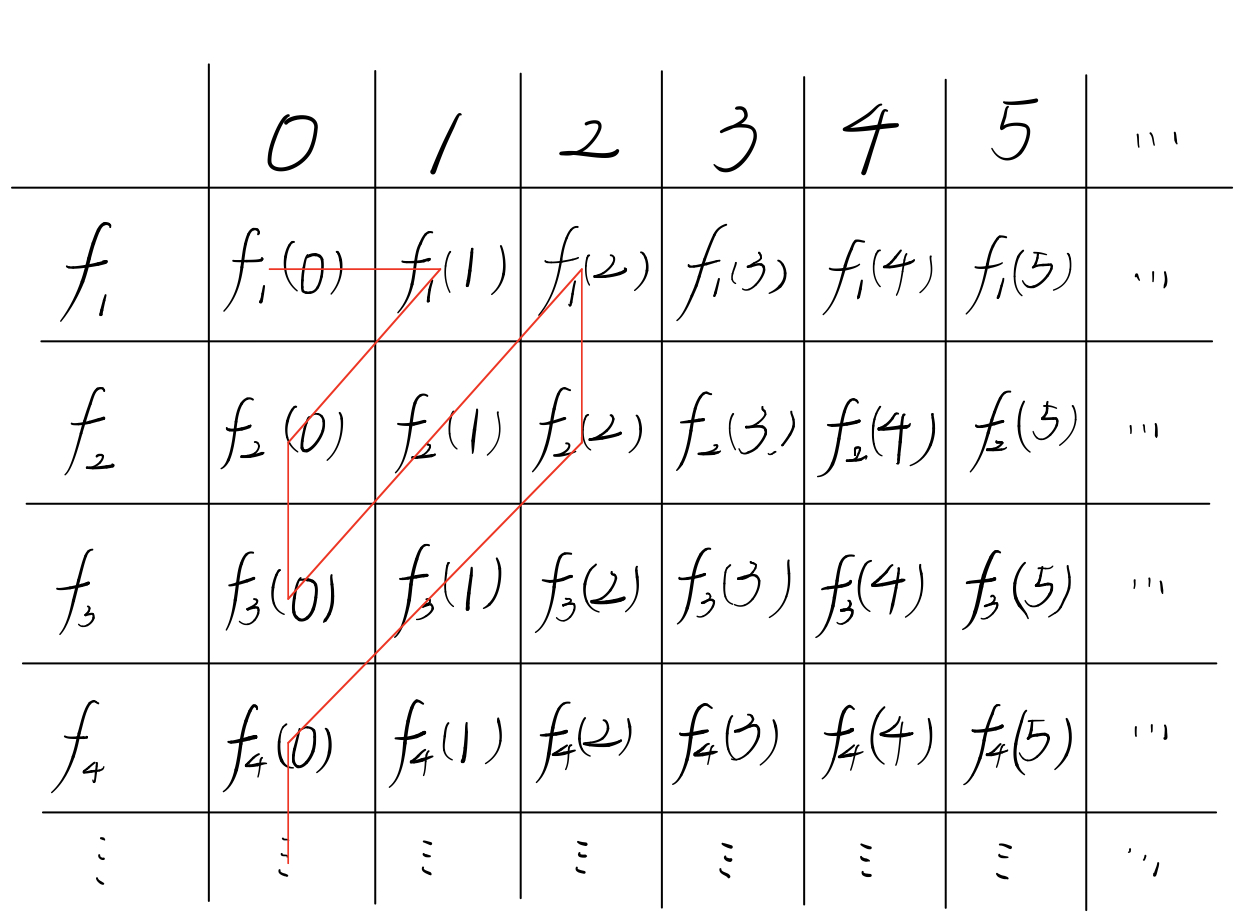 0 1 2 3 4 5 ...
f₁ f₁(0) f₁(1) f₁(2) f₁(3) f₁(4) f₁(5) ...
f₂ f₂(0) f₂(1) f₂(2) f₂(3) f₂(4) f₂(5) ...
f₃ f₃(0) f₃(1) f₃(2) f₃(3) f₃(4) f₃(5) ...
f₄ f₄(0) f₄(1) f₄(2) f₄(3) f₄(4) f₄(5) ...
⋮ ⋮ ⋮ ⋮ ⋮ ⋮ ⋮ ⋱